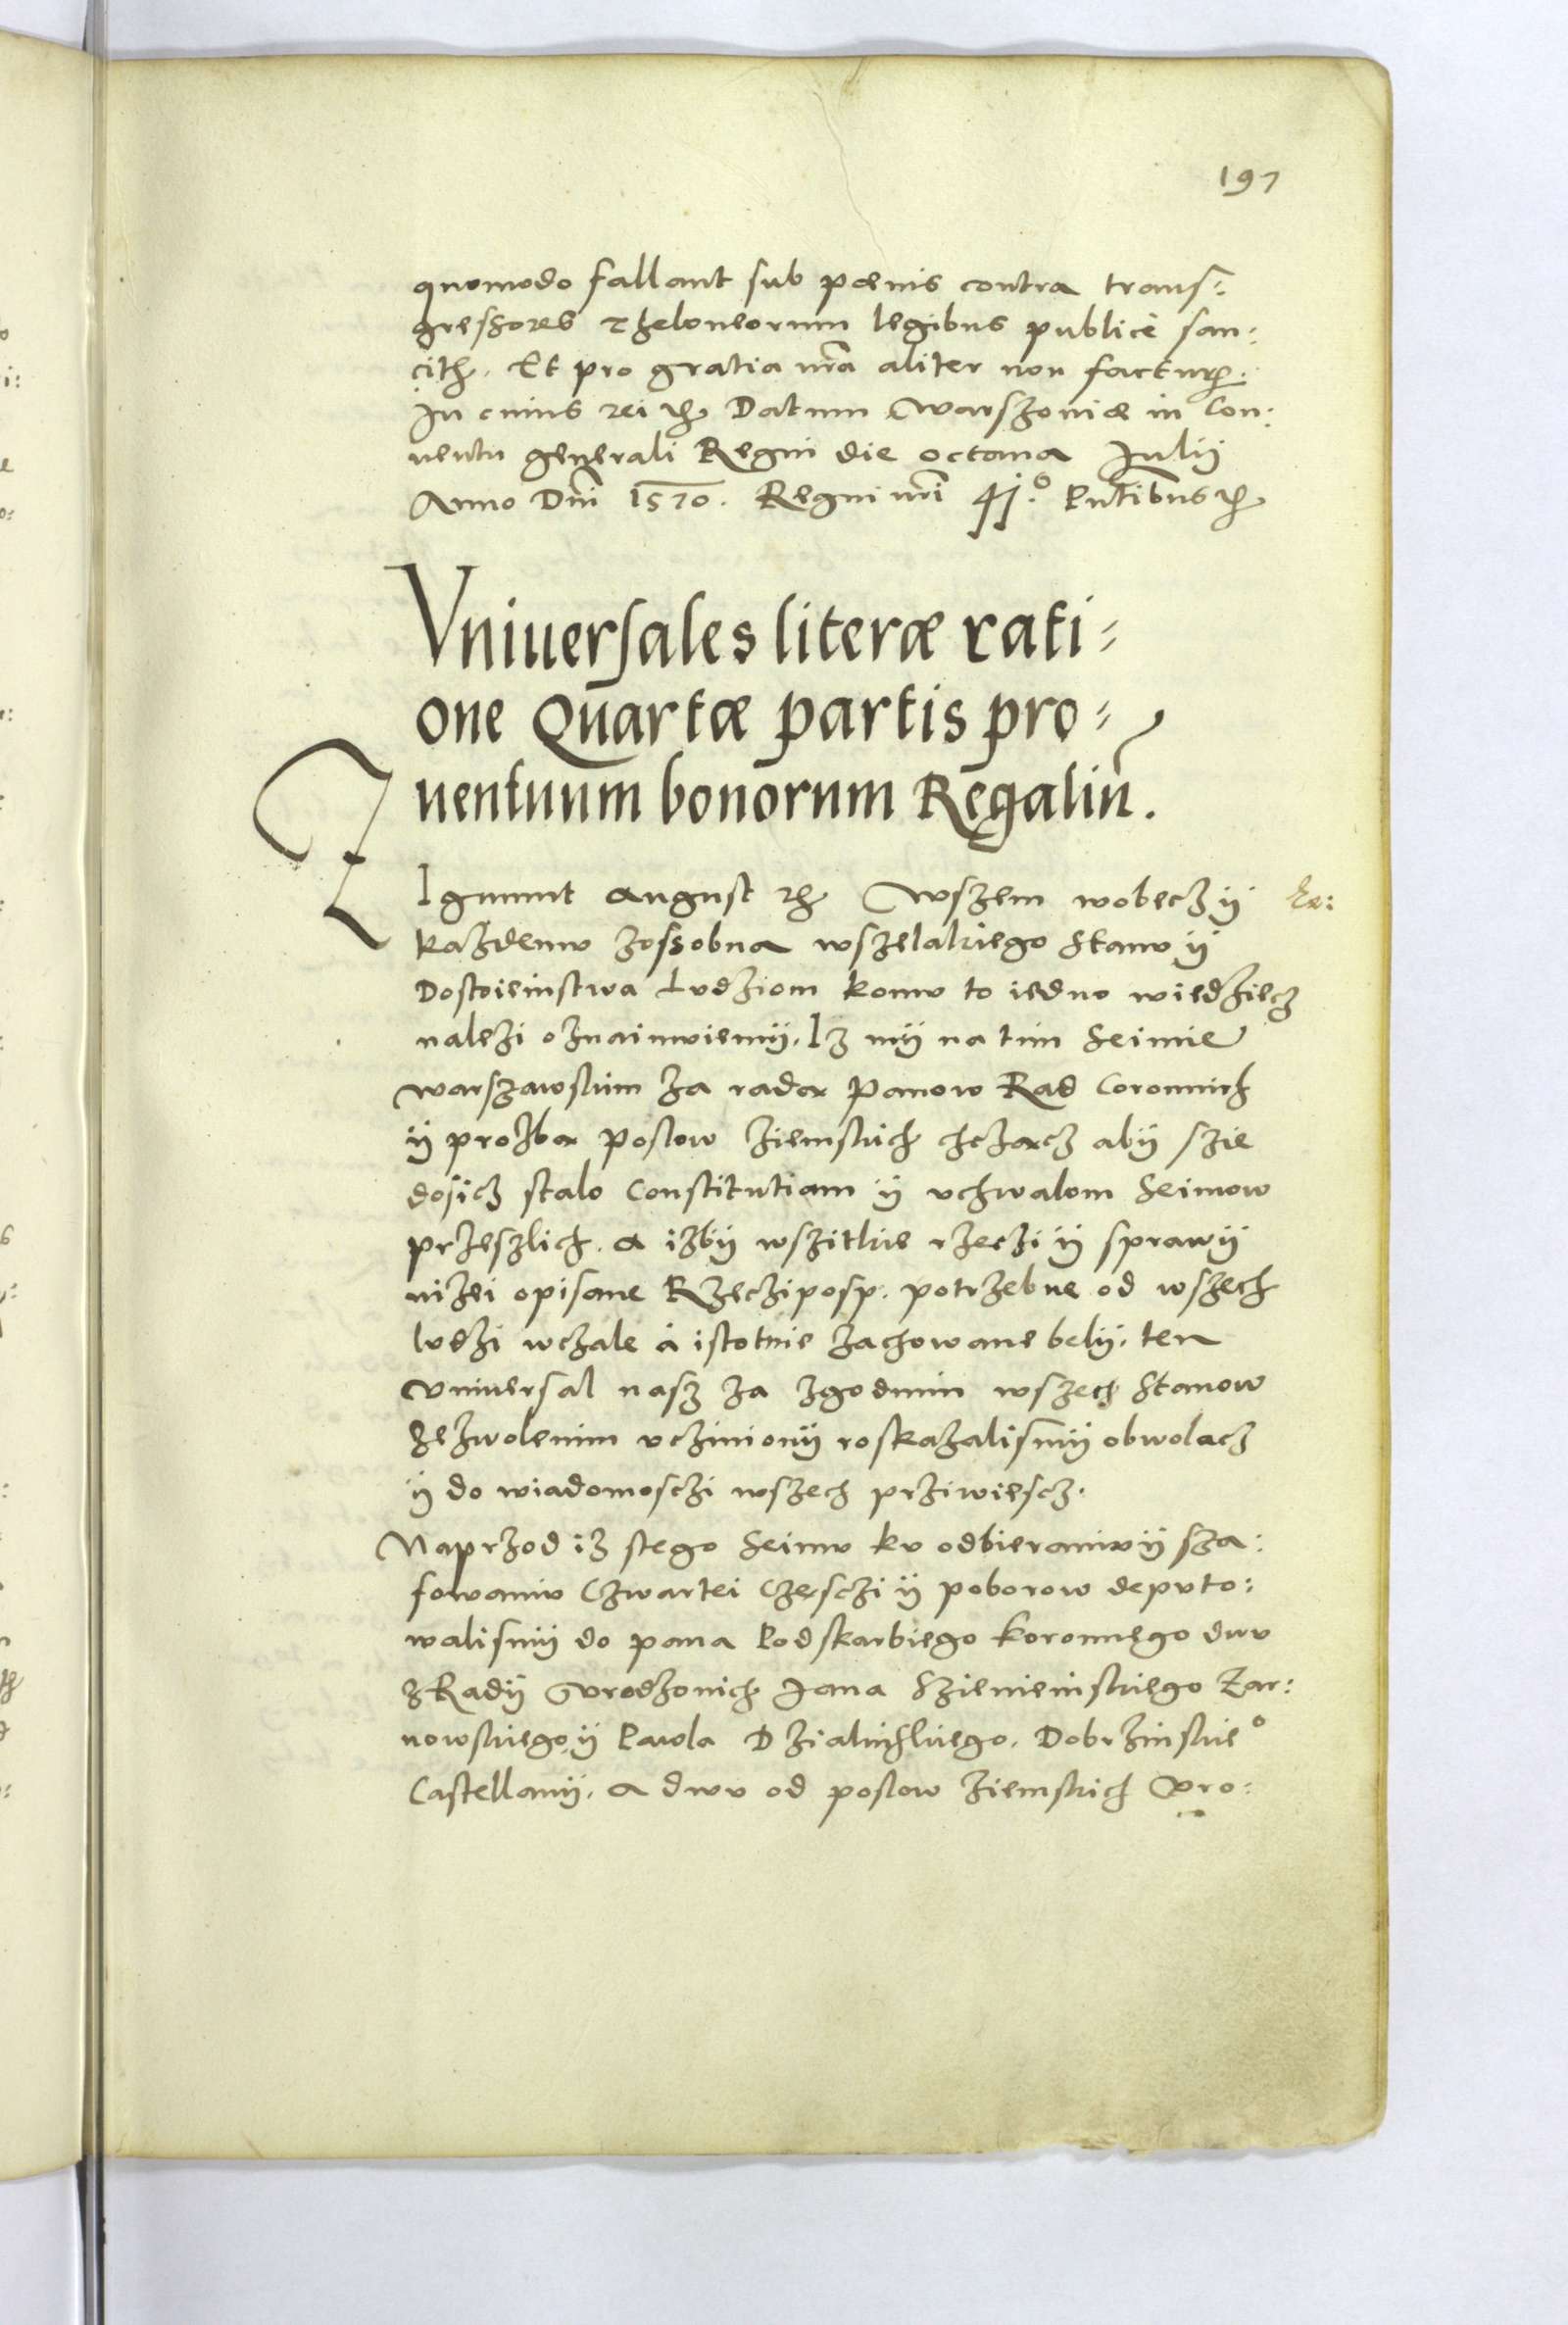 197
quomodo fallant sub pœnis contra trans⸗
gressores Theloneorum legibus publicè san:
cith. Et pro gratia nr̃a aliter non facturꝭ.
In cuius rei ꝛc̃ Datum Warszoviæ in Con:
uentu generali Regni die octaua Iulÿ
Anno Dn̄i 1570. Regni nr̃i 41.º Pn̄tibus ꝛc̃
Vniuersales literæ rati⸗
one Quartæ partis pro⸗
uentuum bonorum Regaliū.
ZIgmunt August ꝛc̃ Wszem wobecz ÿ
każdemv zossobna wszelakiego Stanv ÿ
Dostoieinstwa Lvdziom komv to iedno wiedziecz
nalezi oznaimviemÿ. Iz mÿ na tim Seimie
warszawskim za radą Panow Rad Coronnich
ÿ prozbą Poslow ziemskich chcząncz abÿ szie
dosicz stalo Constitutiam ÿ vchwalom Seimow
przeszlich. a izbÿ wszitkie rzeczi ÿ sprawÿ
nizei opisane Rzeczíposp. potrzebne od wszech
lvdzi wczale á istotnie zachowane belÿ. ten
Vniuersal nasz za zgodnim wszech Stanow
zezwolenim vczinionÿ roskazalismÿ obwolacz
ÿ do wiadomosczi wszech prziwiescz.
Naprzod iz stego Seimv kv odbieraniv ÿ sza:
fowaniv Czwartei Częsczi ÿ poborow depvto:
walismÿ do pana Podskarbiego koronnego dwv
z Radÿ Vrodzonich Jana Szienieinskiego Żar:
nowskiego, ÿ Pawla Dzialinskiego. Dobrzinskieº
Castellanÿ. a dwv od poslow ziemskich Vro: